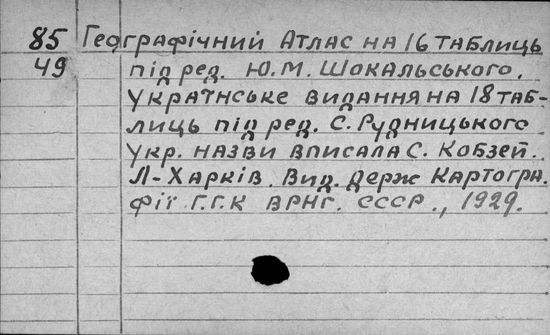 85 Географічний Атлас на 16 таблиць
49 під ред. Ю.М. Шокальського.
Украінське видання на 18 таб-
лиць під ред. С. Рудницького
Укр. назви вписала С. Кобзей.
Л-Харків. Вид. Держ Картогра.
фіі Г.Г.К ВРНГ. СССР., 1929.